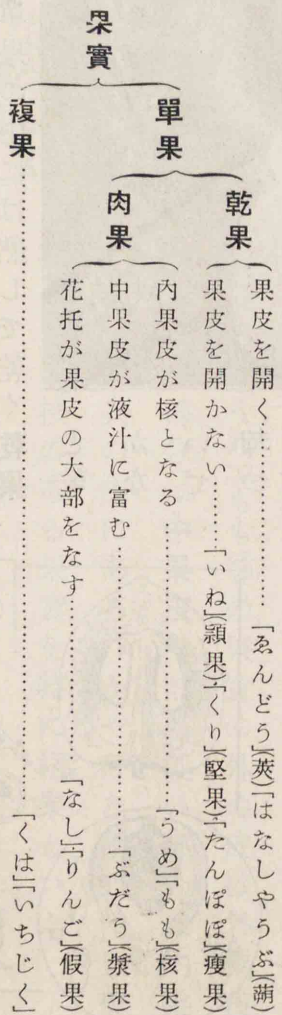 果實
單果
乾果
果皮を開く……………「ゑんどう」(莢)「はなしやうぶ」(蒴)
果皮を開かない………「いね」(穎果)「くり」(堅果)「たんぽぽ」(瘦果)
肉果
內果皮が核となる………………「うめ」「もも」(核果)
中果皮が液汁に富む………………「ぶだう」(漿果)
花托が果皮の大部をなす…………「なし」「りんご」(假果)
複果………………………………「くは」「いちじく」